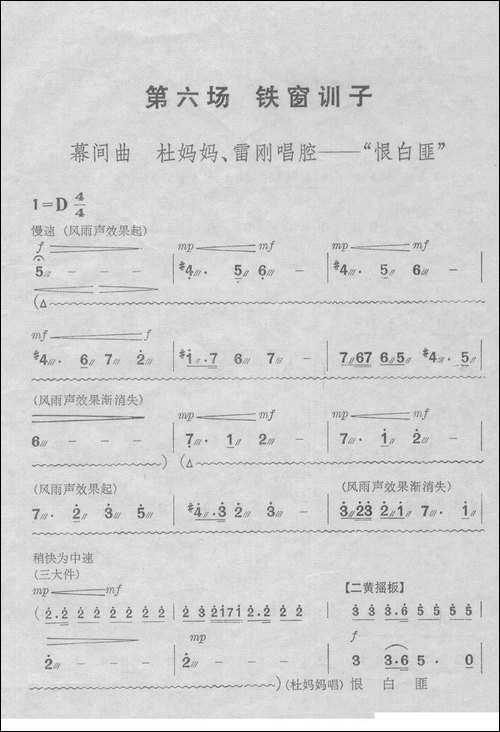 第六场 铁窗训子
幕间曲 杜妈妈、雷刚唱腔——“恨白匪”
1=D 4/4
慢速 (风雨声效果起)
f mp mf mp mf
5/// - - - | #4///. 5// 6/// - | #4///. 5// 6/// - |
(△
mf f
#4///. 6// 7/// 2̇/// | #1̇. 7 6/// 7/// - | 7// 67 6// 5// #4///. 5// |
(风雨声效果渐消失)
mp mf mp mf
6/// - - - | 7///. 1̇// 2̇/// - | 7///. 1̇// 2̇/// - |
) (△
(风雨声效果起) (风雨声效果渐消失)
7///. 2̇// 3̇/// 5̇/// | #4̇. 3̇ 2̇/// 3̇/// - | 3̇// 2̇3̇ 2̇// 1̇// 7///. 1̇// |
稍快为中速
(三大件)
mp mf 【二黄摇板】
(2̇. 2̇ 2̇ 2̇ 2̇ 2̇ 2̇ 2̇ | 2̇ 3̇ 2̇1̇71̇ 2̇. 2̇ 2̇ 2̇ | 3̇ 3̇ 3̇. 6̇ 5̇ 5̇ 5̇ 5̇ |
mp f
2̇/// - - - | 2̇/// - - - | 3 3. 6 5. 0 |
)(杜妈妈唱) 恨 白 匪